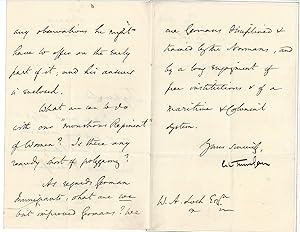 any observations he might
have to offer on the early
part of it, and his answer
is enclosed.
What are we to do
with our "monstrous Regiment"
of Women? Is there any
remedy short of polygamy?
As regards German
Immigrants, what are we
but improved Germans? We
are Germans disciplined &
trained by the Normans, and
by a long enjoyment of
free institutions & of a
maritime & Colonial
system.
Yours sincerely,
W. A.